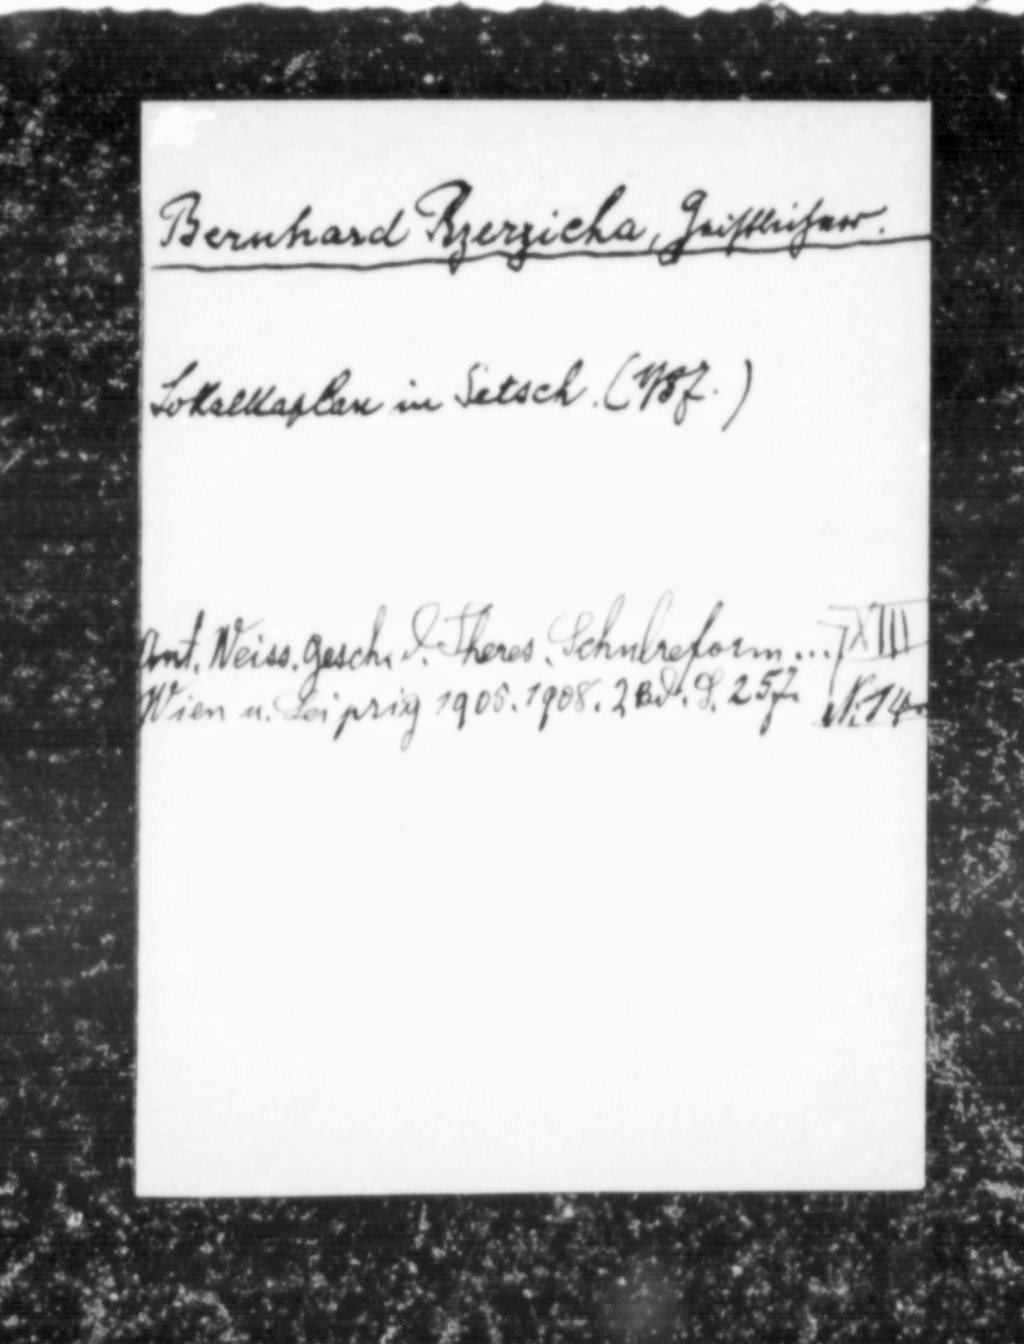 Bernhard Rzerzicha, Geistlicher.
Lokalkaplan in Setsch. (
Ant. Weiss. Gesch. d. Theres. Schulreform... XIII
Wien u. Leipzig 1905. 1908. 2 Bd. S. 257. N: 14